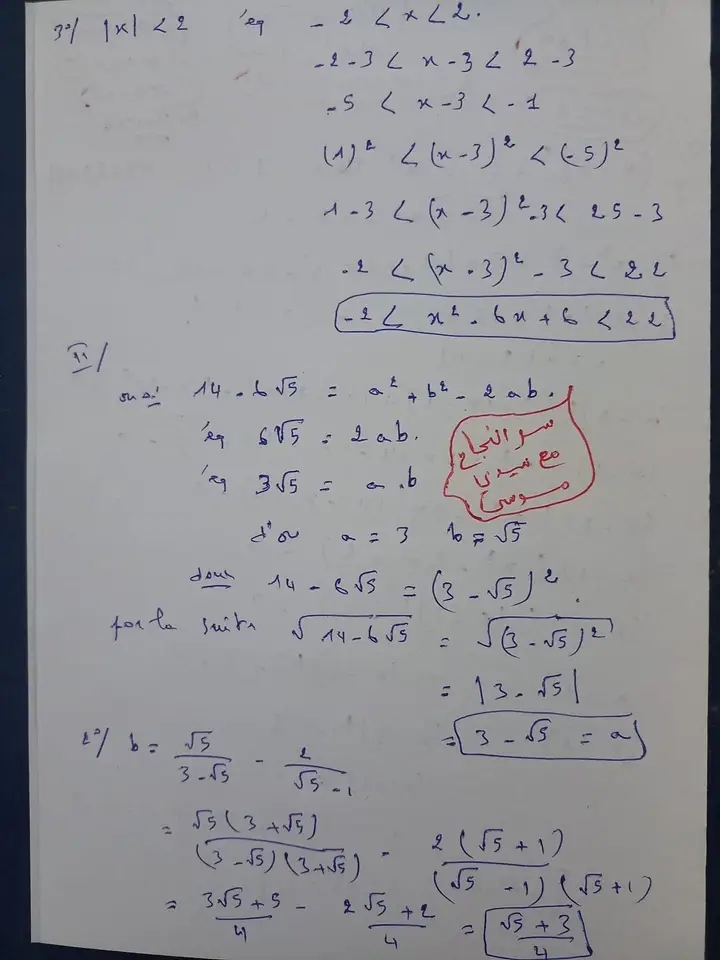 3°/ |x| < 2 éq - 2 < x < 2.
-2-3 < x - 3 < 2 - 3
-5 < x - 3 < -1
(1)² < (x-3)² < (-5)²
1 - 3 < (x - 3)² - 3 < 25 - 3
-2 < (x - 3)² - 3 < 22
-2 < x² - 6x + 6 < 22
II/
14 - 6√5 = a² + b² - 2ab.
éq 6√5 = 2ab.
éq 3√5 = a.b
d'ou a = 3 b = √5
donc 14 - 6√5 = (3 - √5)².
par la suite √(14-6√5) = √((3-√5)²)
= |3 - √5|
= 3 - √5 = a
سر النجاح
مع سيدي
موسى
2°/ b = √5/(3-√5) - 2/(√5 - 1)
= √5(3+√5)/((3-√5)(3+√5)) - 2(√5+1)/((√5 - 1)(√5+1))
= (3√5+5)/4 - (2√5+2)/4 = (√5+3)/4